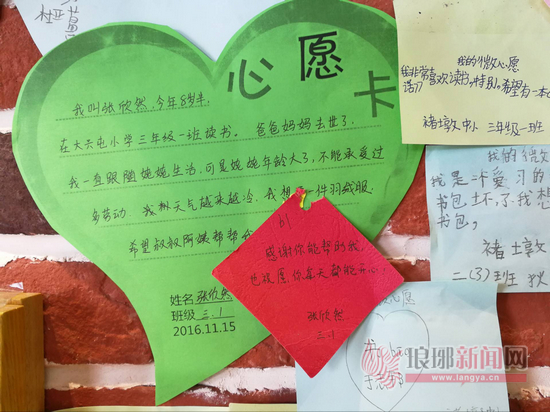 心愿卡
我叫张欣然，今年8岁半，
在大六屯小学三年级一班读书。爸爸妈妈去世了，
我一直跟随姥姥生活，可是姥姥年龄大了，不能承受过
多劳动，我村天气越来越冷，我想要一件羽绒服
希望叔叔阿姨帮帮我
姓名 张欣然
班级 三.1
2016.11.15
61
感谢你能帮助我
也祝愿你每天都能开心
张欣然
三.1
我的微心愿
我非常喜欢读书，特别希望有一本
褚墩中小 三年级一班
我的微
我是一个爱习的
书包坏了，我想
书包，
褚墩
二(3)班
琅琊新闻网
www.langya.cn